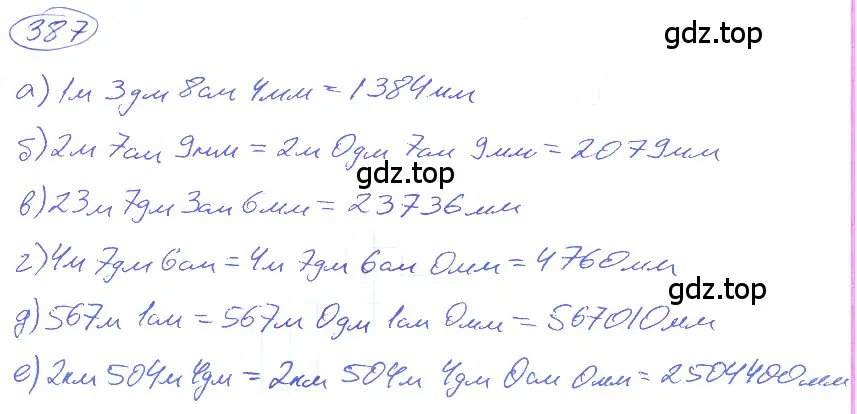 387
gdz.top
а) 1м 3дм 8см 4мм = 1384мм
б) 2м 7см 9мм = 2м 0дм 7см 9мм = 2079мм
gdz.top
в) 23м 7дм 3см 6мм = 23736мм
г) 4м 7дм 6см = 4м 7дм 6см 0мм = 4760мм
gdz.top
д) 567м 1см = 567м 0дм 1см 0мм = 567010мм
е) 2км 504м 4дм = 2км 504м 4дм 0см 0мм = 2504400мм